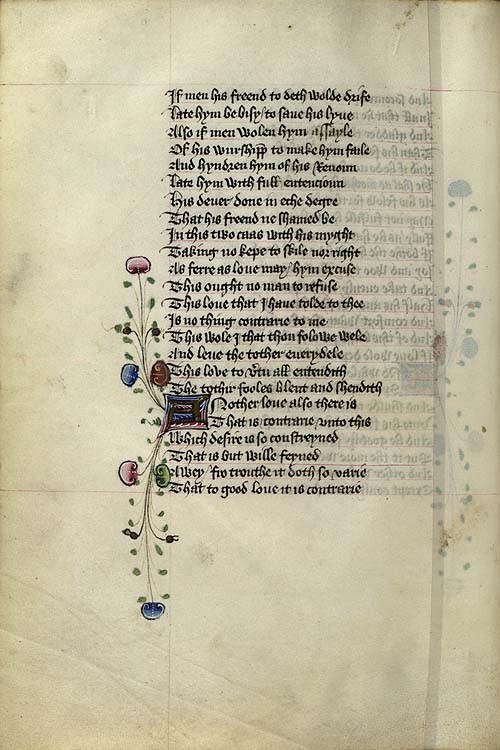 If men his freend to deth wolde drife
Late hym be bisy to saue his lyue
Also if men wolen hym assayle
Of his wurshipp to make hym faile
And hyndren hym of his Renoun
Late hym with full entencioun
His deuer done in eche degre
That his freend ne shamed be
In this two caas with his myght
Taking no kepe to skile nor right
As ferre as loue may hym excuse
This ought no man to refuse
This loue that I haue tolde to thee
Is no thing contrarie to me
This wole I that thou folowe wele
And leue the tother euerydele
This loue to vtu all entendith
The tothir fooles blent and shendith
A Nother loue also there is
That is contrarie vnto this
Which desire is so constreyned
That is but wille feyned
Awey fro trouthe it doth so varie
That to good loue it is contrarie